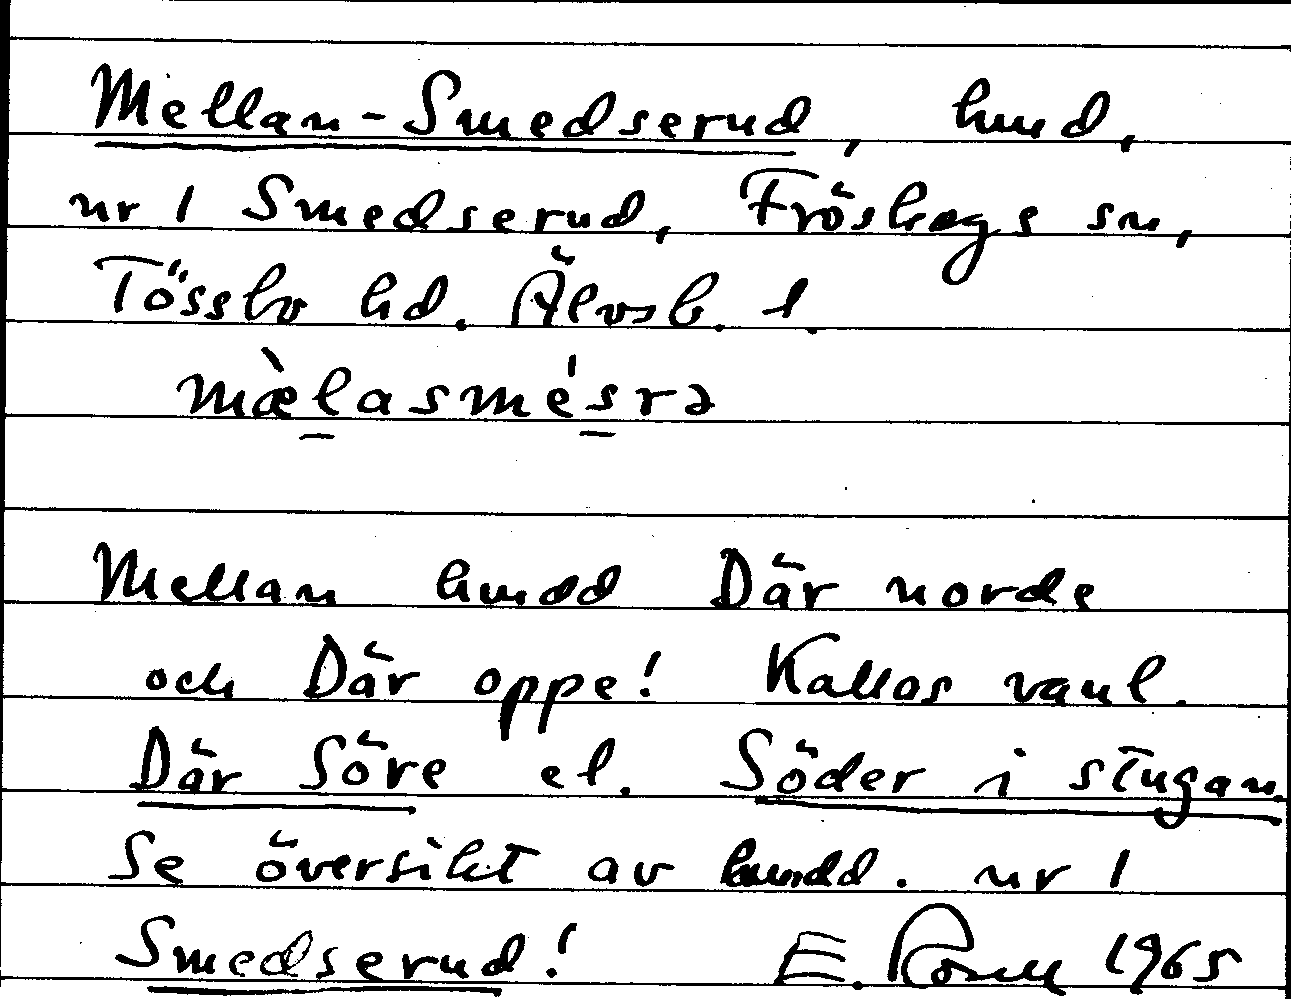 Mellan-Smedserud, hmd,
nr 1 Smedserud, Fröskogs sn,
Tössbo hd. Älvsb. l.
mæ̀lasmésrə
Mellan hmdd Där norde
och Där oppe! Kallas vanl.
Där Söre el. Söder i stugan.
Se översikt av hmdd. nr 1
Smedserud! E. 1965